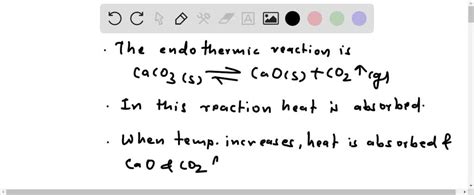 · The endothermic reaction is
CaCO3 (s) ⇌ CaO(s) + CO2↑(g)
· In this reaction heat is absorbed.
· When temp. increases, heat is absorbed &
CaO & CO2